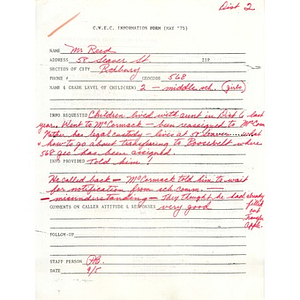 Dist 2
C.W.E.C. INFORMATION FORM (MAY '75)
NAME Mr Reed
ADDRESS 58 Seaver St. ZIP
SECTION OF CITY Roxbury
PHONE # GEOCODE 568
NAME & GRADE LEVEL OF CHILD(REN) 2 - middle sch. (girls)
INFO REQUESTED Children lived with aunt in Dist 6 last
year. Went to McCormack - been reassigned to McCormack
Father has legal custody - lives at 58 Seaver what
& how to go about transferring to Roosevelt where
568 geo has been assigned.
INFO PROVIDED Told him!
He called back - McCormack told him to wait
for notification from sch comm. -
- misunderstanding - They thought he had already
filled
out
transfer
appli.
COMMENTS ON CALLER ATTITUDE & RESPONSES very good
FOLLOW-UP
STAFF PERSON PB
DATE 9/5